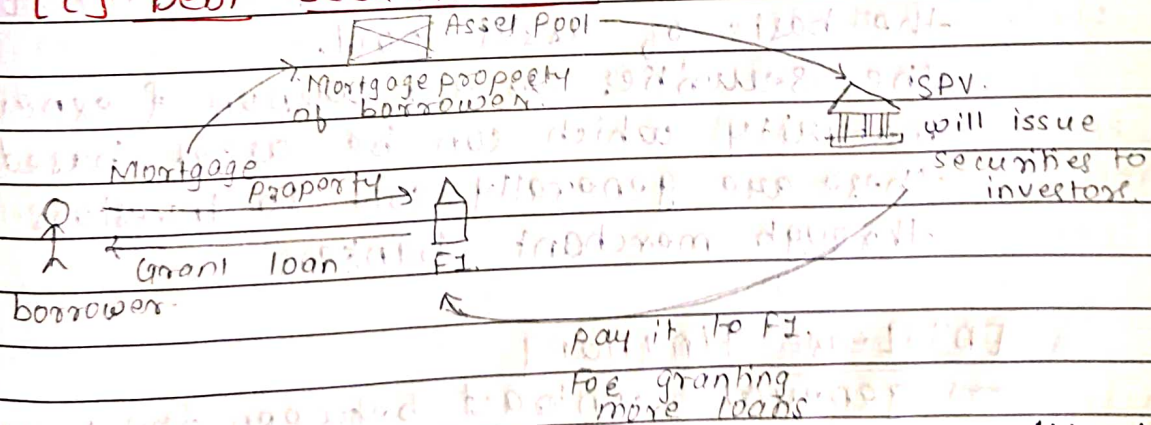 [C] Debt
Asset Pool
Mortgage property
of borrower.
SPV.
will issue
securities to
investors.
Mortgage
Property
Grant loan
F1.
borrower.
Pay it to F1.
Foe granting
more loans